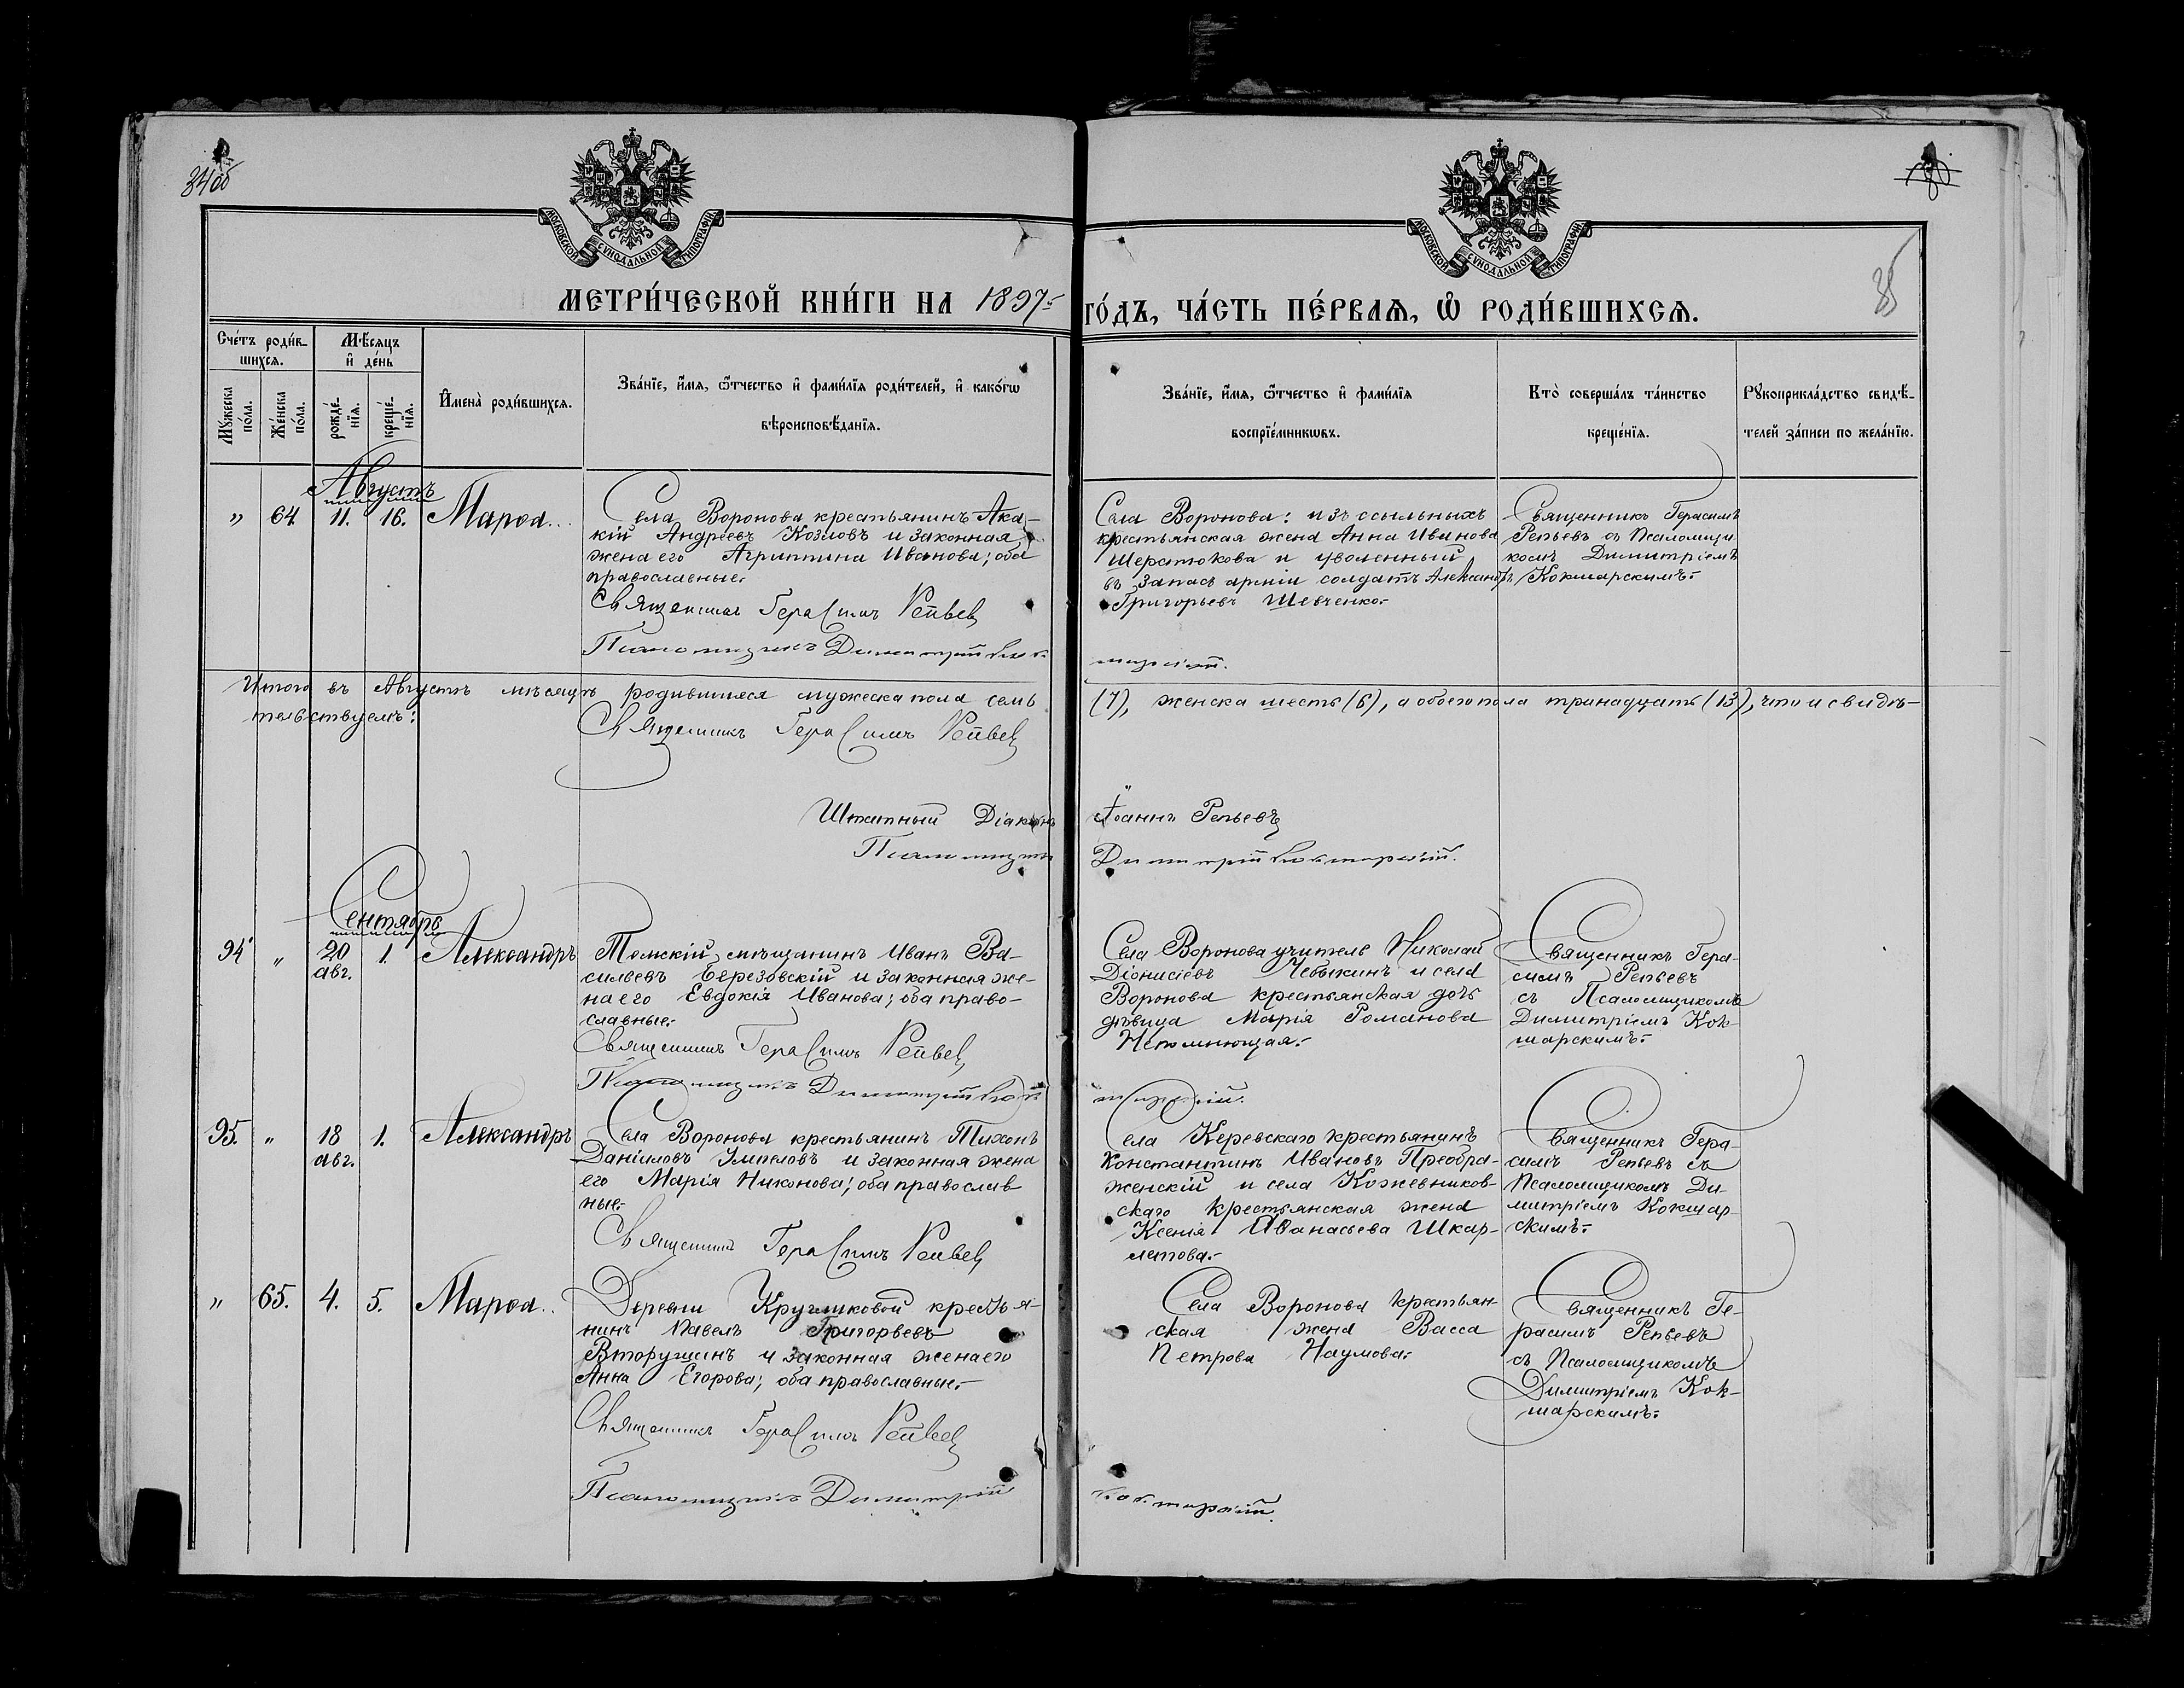 34об
МОСКОВСКОЙ СѴНОДАЛЬНОЙ ТИПОГРАФІИ
МОСКОВСКОЙ СѴНОДАЛЬНОЙ ТИПОГРАФІИ
35
МЕТРИ́ЧЕСКОЙ КНИ́ГИ НА 1897 ГО́ДЪ, ЧА́СТЬ ПЕ́РВАѦ, Ѡ҆ РОДИ́ВШИХСѦ.
Сче́тъ роди́в-
шихсѧ.
Мѣ́сѧцъ
и҆ де́нь
Мꙋ́жеска по́ла.
Же́нска по́ла.
рожде́-
нїѧ.
креще́-
нїѧ.
И҆мена̀ роди́вшихсѧ.
Зва́нїе, и҆́мѧ, ѻ҆́тчество и҆ фами́лїѧ роди́телей, и҆ како́гѡ
вѣроисповѣ́данїѧ.
Зва́нїе, и҆́мѧ, ѻ҆́тчество и҆ фами́лїѧ
воспрїе́мникѡвъ.
Кто̀ соверша́лъ та́инство
креще́нїѧ.
Рꙋкоприкла́дство свидѣ́-
телей за́писи по жела́нїю.
Августъ
" 64. 11. 16. Марѳа...
Села Воронова крестьянинъ Ака-
кій Андреевъ Козловъ и законная
жена его Агриппина Иванова; оба
православные.
Священникъ Герасимъ Репьевъ
Псаломщикъ Димитрій Кок-
шарскій.
Села Воронова: изъ ссыльныхъ
крестьянская жена Анна Иванова
Шерстюкова и уволенный
въ запасъ арміи солдатъ Александръ
Григорьевъ Шевченко.
Священникъ Герасимъ
Репьевъ съ Псаломщи-
комъ Димитріемъ
Кокшарскимъ.
Итого въ Августѣ мѣсяцѣ родившихся мужеска пола семь (7), женска шесть (6), а обоего пола тринадцать (13), что и свидѣ-
тельствуемъ:
Священникъ Герасимъ Репьевъ
Штатный Діаконъ Іоаннъ Репьевъ
Псаломщикъ Димитрій Кокшарскій.
Сентябрь
94 " 20 авг. 1. Александръ
Томскій мѣщанинъ Иванъ Ва-
сильевъ Березовскій и законная же-
на его Евдокія Иванова; оба право-
славные.
Священникъ Герасимъ Репьевъ
Псаломщикъ Димитрій Кок-
шарскій.
Села Воронова учитель Николай
Діонисіевъ Чебыкинъ и села
Воронова крестьянская дочь
дѣвица Марія Романова
Непомнющая.
Священникъ Гера-
симъ Репьевъ
съ Псаломщикомъ
Димитріемъ Кок-
шарскимъ.
95. " 18 авг. 1. Александръ
Села Воронова крестьянинъ Тихонъ
Даніиловъ и законная жена
его Марія Никонова; оба православ
ные.
Священникъ Герасимъ Репьевъ
Села Керевскаго крестьянинъ
Константинъ Ивановъ Преобра-
женскій и села Кожевников-
скаго крестьянская жена
Ксенія Аѳанасьева Шкар-
летова.
Священникъ Гера-
симъ Репьевъ съ
Псаломщикомъ Ди-
митріемъ Кокшар-
скимъ.
" 65. 4. 5. Марѳа..
Деревни Кругликовой крестья-
нинъ Павелъ Григорьевъ
Вторушинъ и законная жена его
Анна Егорова; оба православные.
Священникъ Герасимъ Репьевъ
Псаломщикъ Димитрій Кокшарскій.
Села Воронова крестьян-
ская жена Васса
Петрова Наумова.
Священникъ Ге-
расимъ Репьевъ
съ Псаломщикомъ
Димитріемъ Кок-
шарскимъ.